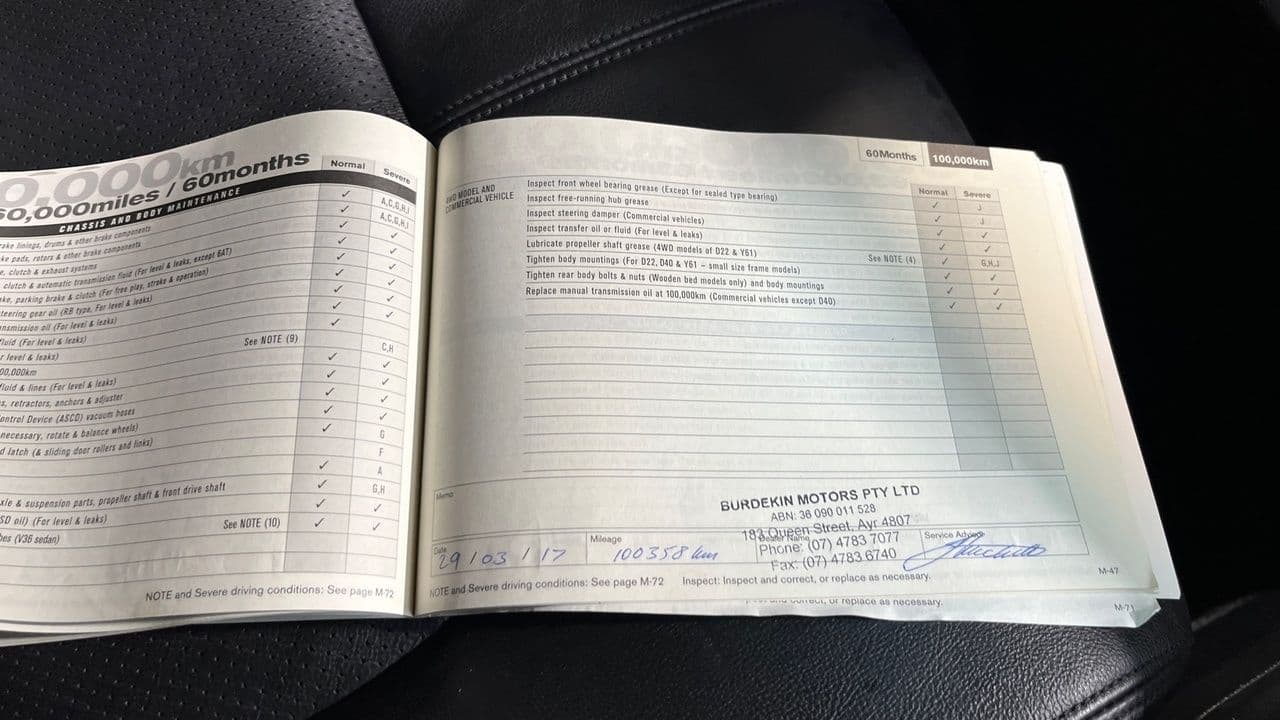 0,000km
60,000miles / 60months
CHASSIS AND BODY MAINTENANCE
Normal
Severe
ake linings, drums & other brake components ✓ A,C,G,H,I
ke pads, rotors & other brake components ✓ A,C,G,H,I
e, clutch & exhaust systems ✓ ✓
clutch & automatic transmission fluid (For level & leaks, except 6AT) ✓ ✓
ke, parking brake & clutch (For free play, stroke & operation) ✓ ✓
teering gear oil (RB type, For level & leaks) ✓ ✓
ansmission oil (For level & leaks) ✓ ✓
fluid (For level & leaks) ✓ ✓
r level & leaks) See NOTE (9)
00,000km C,H
fluid & lines (For level & leaks) ✓ ✓
s, retractors, anchors & adjuster ✓ ✓
ontrol Device (ASCD) vacuum hoses ✓ ✓
necessary, rotate & balance wheels) ✓ ✓
d latch (& sliding door rollers and links) ✓ G
F
✓ A
xle & suspension parts, propeller shaft & front drive shaft ✓ G,H
SD oil) (For level & leaks) ✓ ✓
bes (V36 sedan) See NOTE (10) ✓ ✓
NOTE and Severe driving conditions: See page M-72
60Months 100,000km
Normal Severe
4WD MODEL AND
COMMERCIAL VEHICLE
Inspect front wheel bearing grease (Except for sealed type bearing) ✓ J
Inspect free-running hub grease ✓ J
Inspect steering damper (Commercial vehicles) ✓ ✓
Inspect transfer oil or fluid (For level & leaks) ✓ ✓
Lubricate propeller shaft grease (4WD models of D22 & Y61) See NOTE (4) ✓ G,H,J
Tighten body mountings (For D22, D40 & Y61 – small size frame models) ✓ ✓
Tighten rear body bolts & nuts (Wooden bed models only) and body mountings ✓ ✓
Replace manual transmission oil at 100,000km (Commercial vehicles except D40) ✓ ✓
Memo
BURDEKIN MOTORS PTY LTD
ABN: 36 090 011 528
183 Queen Street, Ayr 4807
Phone: (07) 4783 7077
Fax: (07) 4783 6740
Date
29 / 03 / 17
Mileage
100358 km
Dealer Name
Service Advisor
NOTE and Severe driving conditions: See page M-72 Inspect: Inspect and correct, or replace as necessary.
M-47
or replace as necessary.
M-71